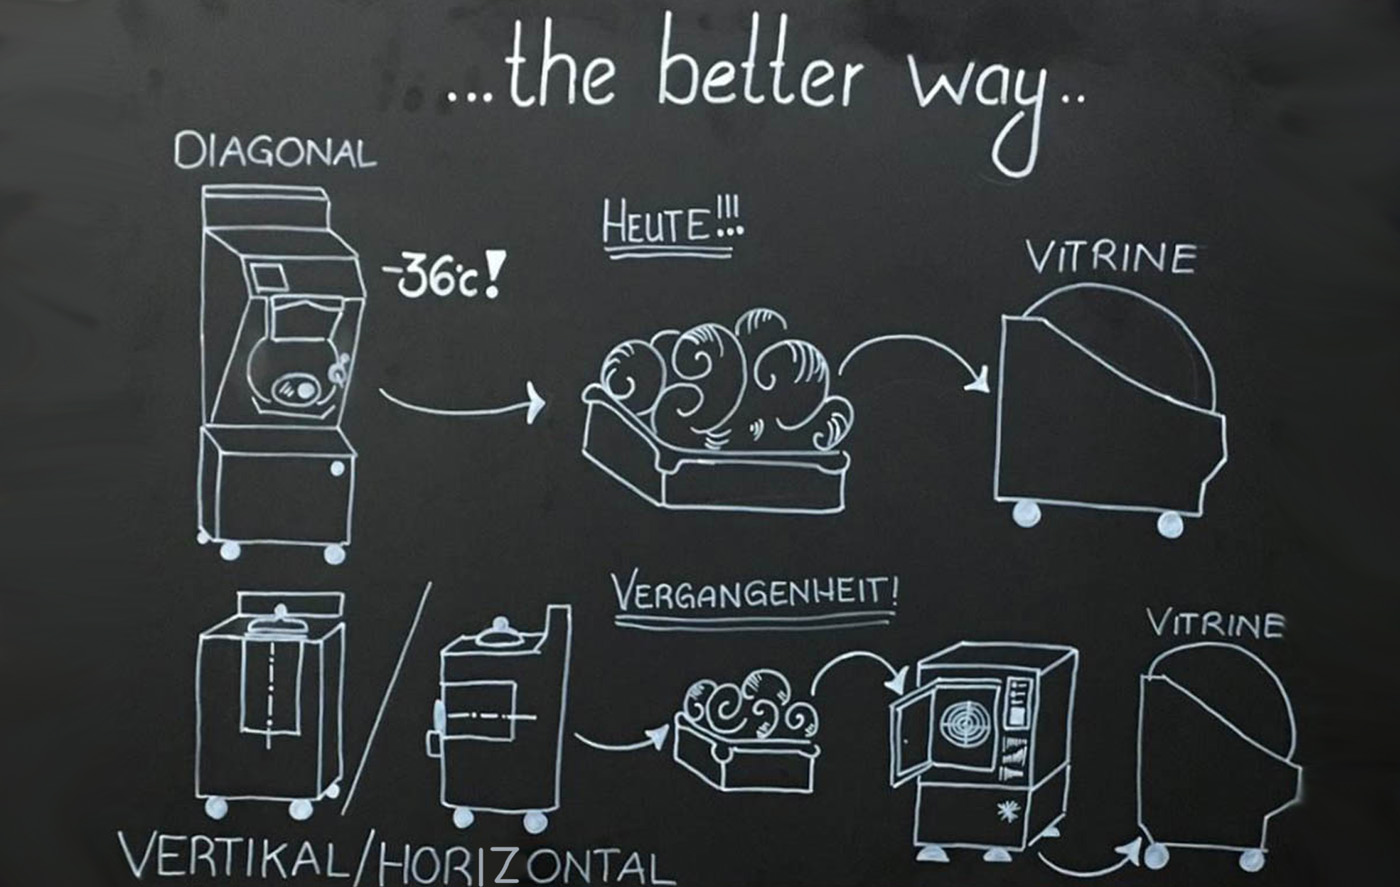 ...the better way..
DIAGONAL
-36°c!
HEUTE!!!
VITRINE
VERGANGENHEIT!
VITRINE
VERTIKAL/HORIZONTAL